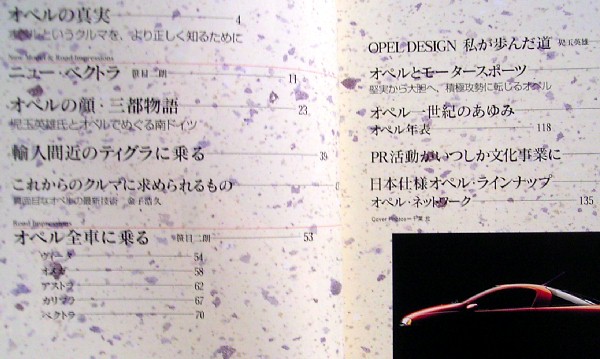 オペルの真実 4
オペルというクルマを、より正しく知るために
New Model & Road Impressions
ニュー・ベクトラ 笹目二朗 11
オペルの顔・三都物語 23
児玉英雄氏とオペルでめぐる南ドイツ
輸入間近のティグラに乗る 39
これからのクルマに求められるもの
真面目なオペルの最新技術 金子浩久
Road Impressions
オペル全車に乗る 笹目二朗 53
ヴィータ 54
オメガ 58
アストラ 62
カリブラ 67
ベクトラ 70
OPEL DESIGN 私が歩んだ道 児玉英雄
オペルとモータースポーツ
堅実から大胆へ、積極攻勢に転じるオペル
オペル一世紀のあゆみ
オペル年表 118
PR活動がいつしか文化事業に
日本仕様オペル・ラインナップ
オペル・ネットワーク 135
Cover Photos=千葉